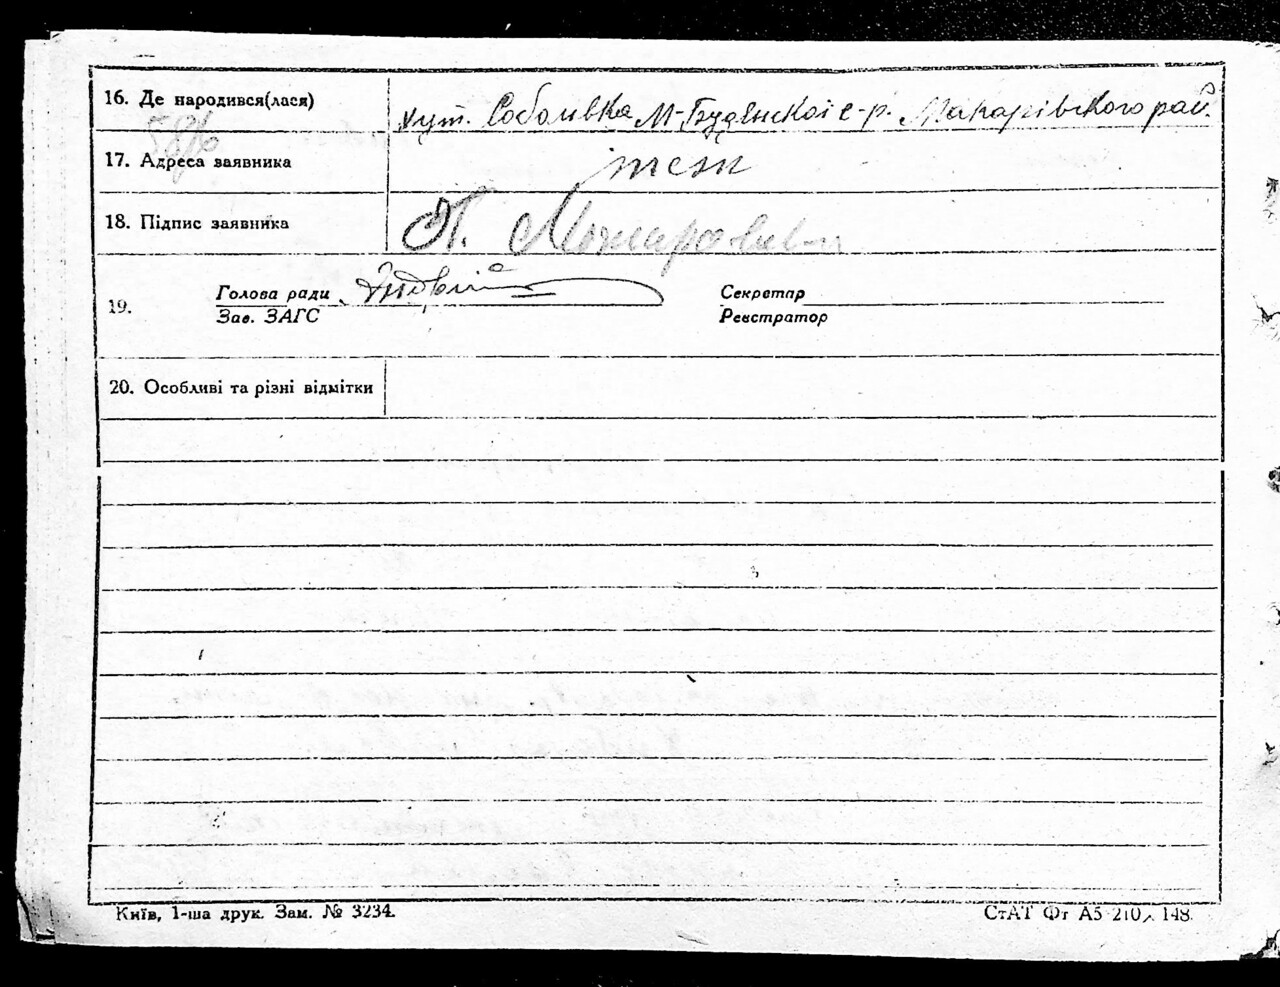 16. Де народився(лася) хут. Соболивка М-Будянскої с-р. Макарівского рай.
17. Адреса заявника теж
18. Підпис заявника П.
19. Голова ради Секретар
Зав. ЗАГС Реєстратор
20. Особливі та різні відмітки
Київ, 1-ша друк. Зам. № 3234. СтАТ Фт А5 210 148.